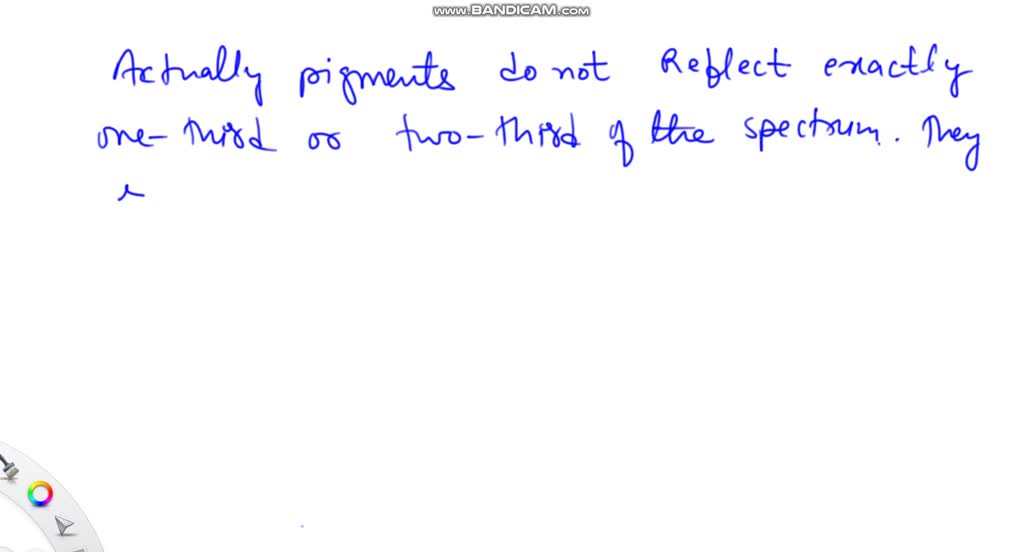 www.BANDICAM.com
Actually pigments do not Reflect exactly
one-third or two-third of the spectrum. They